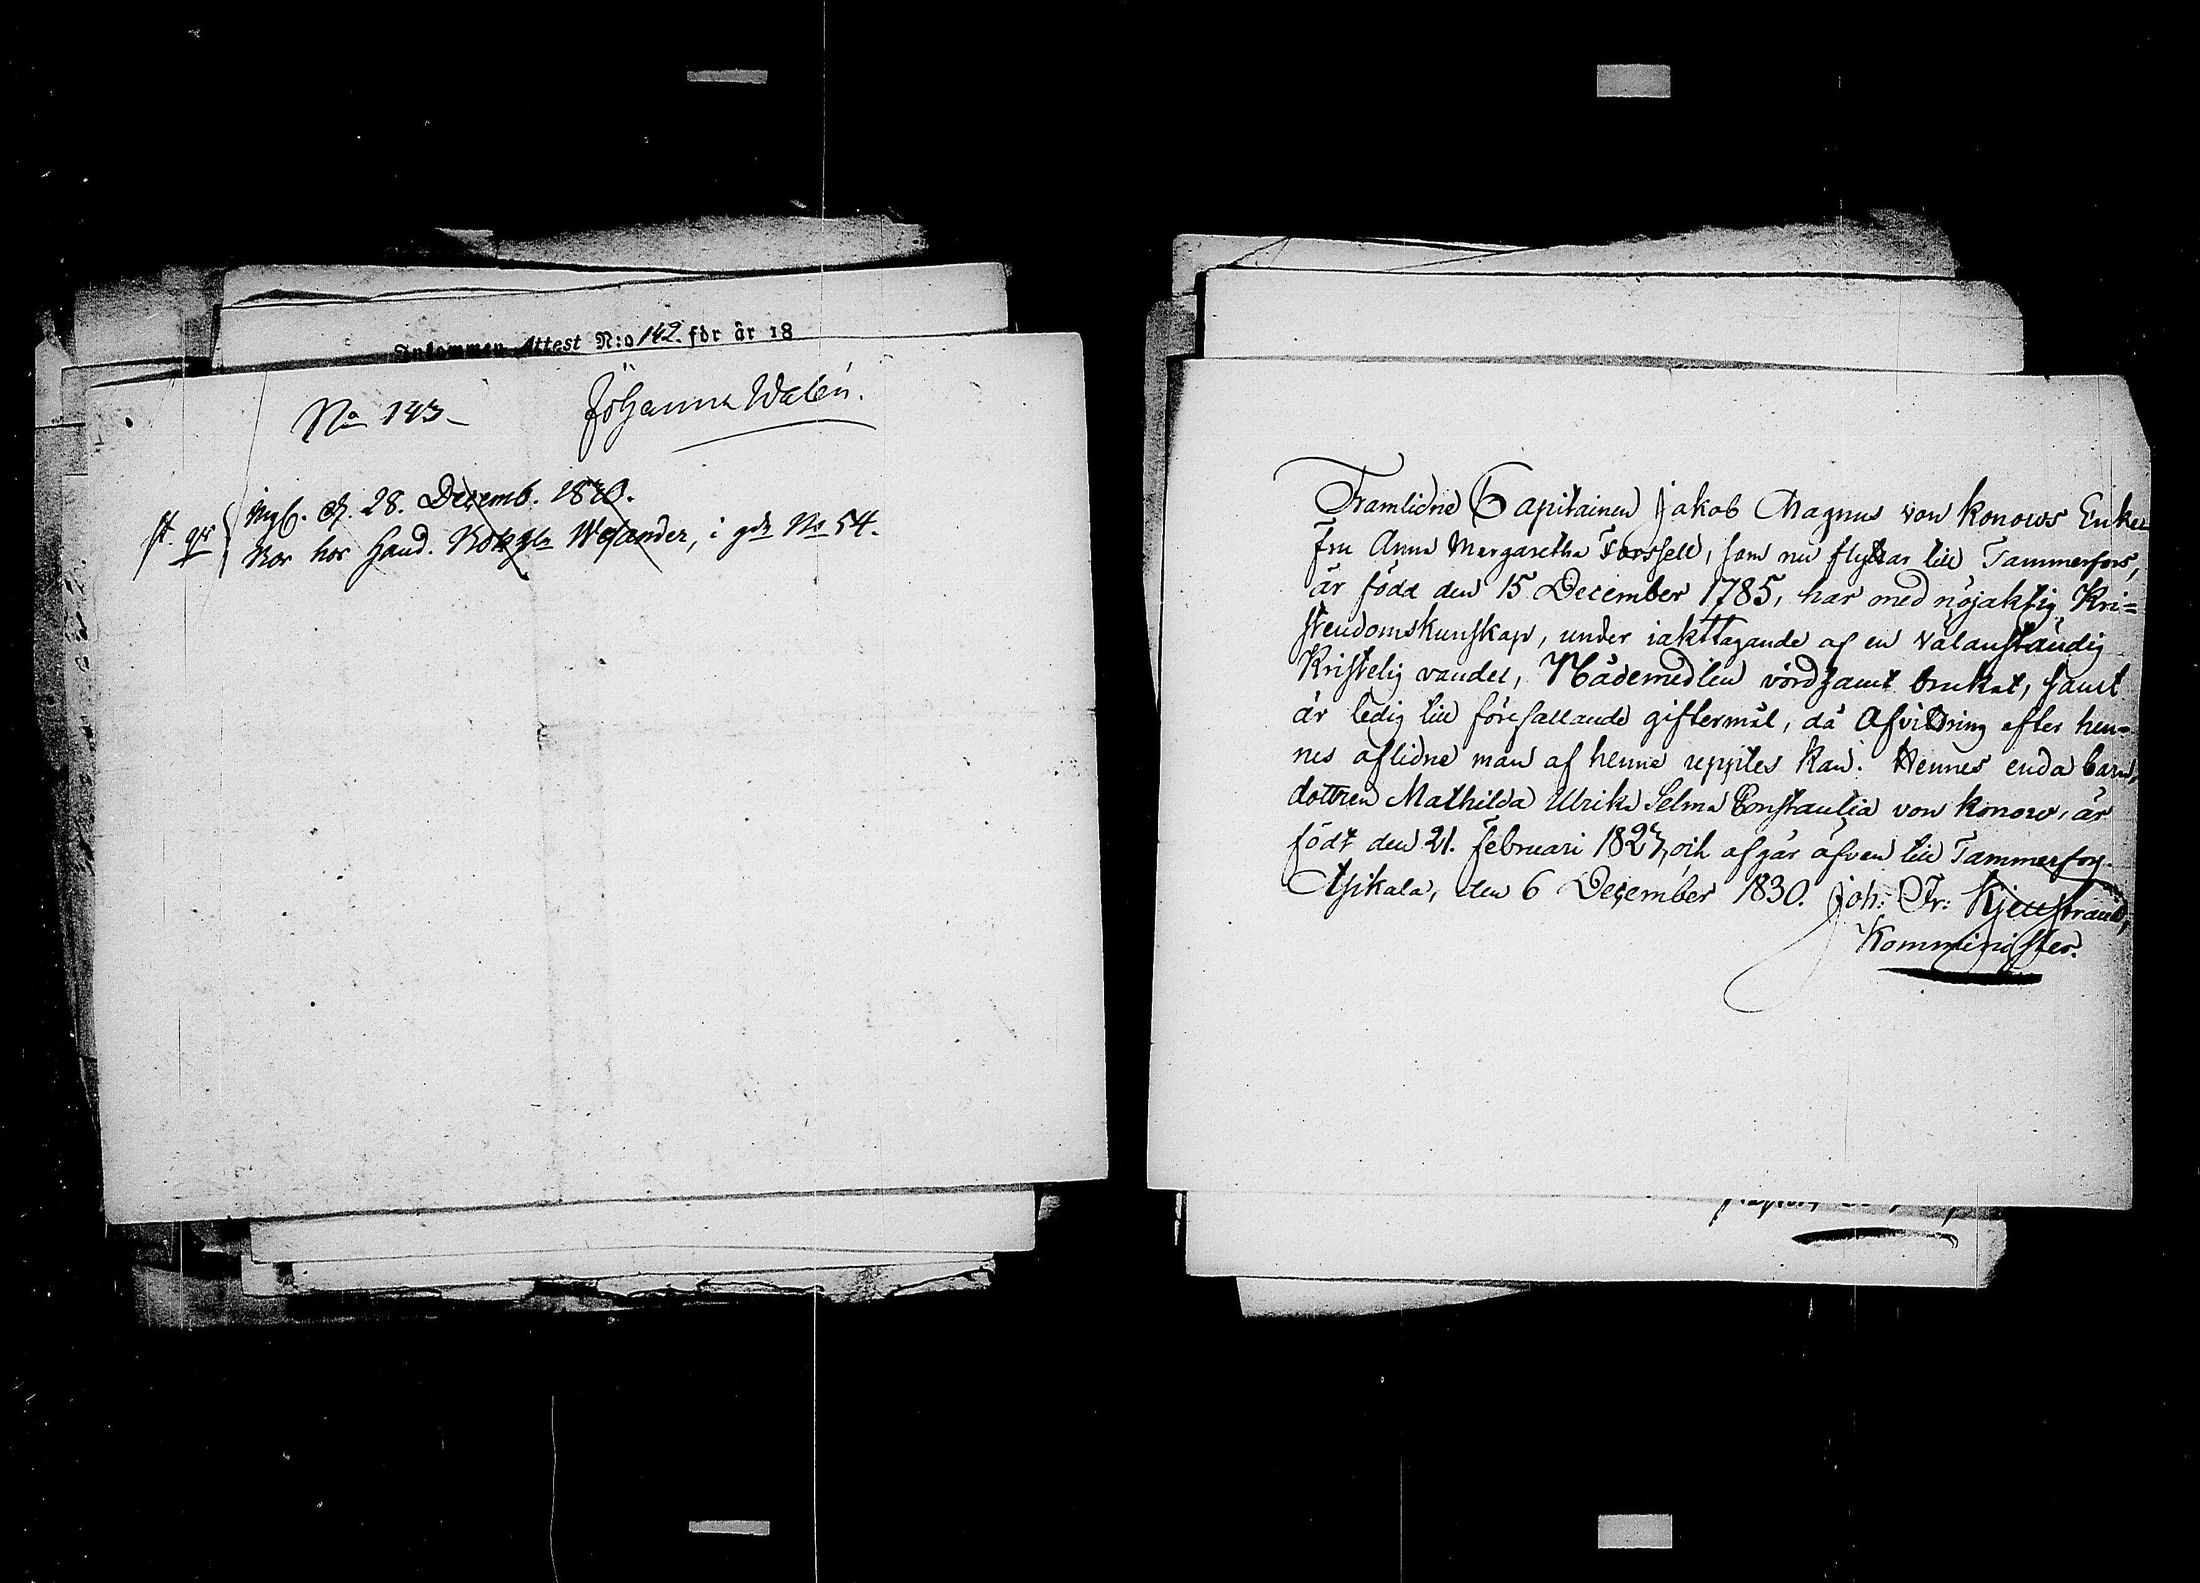 Inkommen Attest N:o 142. för år 18
No 143
Johanna Walén.
d. 28. Decemb. 1870.
Bor hos Hand. Wesander, i gdn No 54.
Framlidne Capitainen Jakob Magnus von Konows Enke
Fru Anna Margaretha Forssell, som nu flyttar till Tammerfors,
är född den 15 December 1785, har med nöjaktig Kri=
stendomskunskap, under iakttagande af en välanständig
Kristelig vandel, Nådemedlen vördsamt brukat, samt
är ledig till förefallande giftermål, då Afvittring efter hen-
nes aflidne man af henne uppites kan. Hennes enda barn,
dottren Mathilda Ulrika Selma Constantia von Konow, är
född den 21. Februari 1827, och afgår äfven till Tammerfors.
Asikala, den 6 December 1830. Joh: Fr: Kjellstrand,
Komminister.